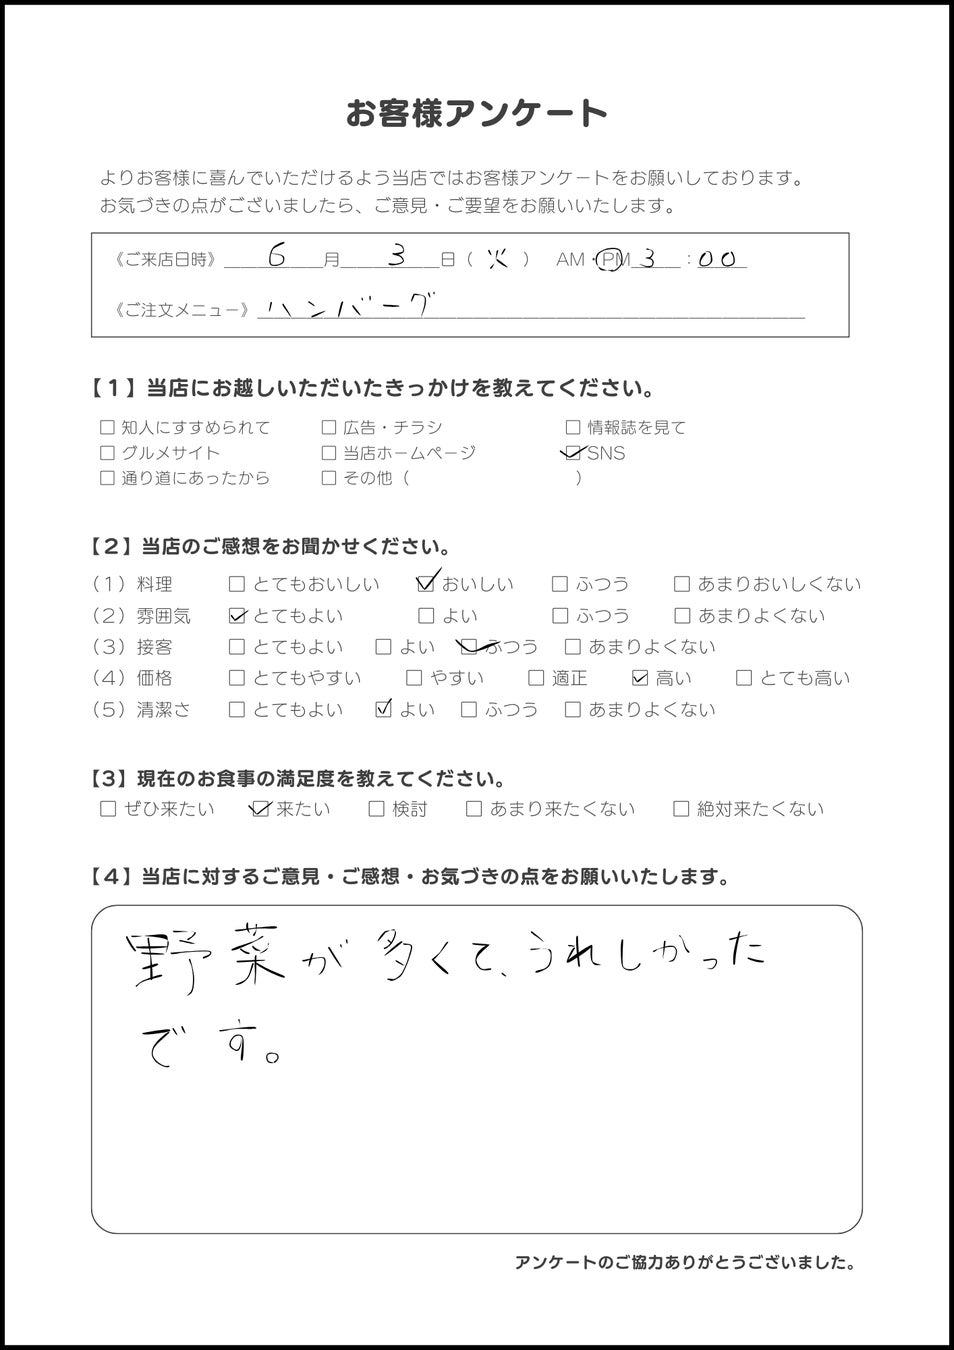 お客様アンケート
よりお客様に喜んでいただけるよう当店ではお客様アンケートをお願いしております。
お気づきの点がございましたら、ご意見・ご要望をお願いいたします。
《ご来店日時》 6 月 3 日（ 火 ） AM・PM 3 : 00
《ご注文メニュー》 ハンバーグ
【1】当店にお越しいただいたきっかけを教えてください。
□ 知人にすすめられて □ 広告・チラシ □ 情報誌を見て
□ グルメサイト □ 当店ホームページ ☑ SNS
□ 通り道にあったから □ その他（ ）
【2】当店のご感想をお聞かせください。
（1）料理 □ とてもおいしい ☑ おいしい □ ふつう □ あまりおいしくない
（2）雰囲気 ☑ とてもよい □ よい □ ふつう □ あまりよくない
（3）接客 □ とてもよい □ よい ☑ ふつう □ あまりよくない
（4）価格 □ とてもやすい □ やすい □ 適正 ☑ 高い □ とても高い
（5）清潔さ □ とてもよい ☑ よい □ ふつう □ あまりよくない
【3】現在のお食事の満足度を教えてください。
□ ぜひ来たい ☑ 来たい □ 検討 □ あまり来たくない □ 絶対来たくない
【4】当店に対するご意見・ご感想・お気づきの点をお願いいたします。
野菜が多くて、うれしかった
です。
アンケートのご協力ありがとうございました。